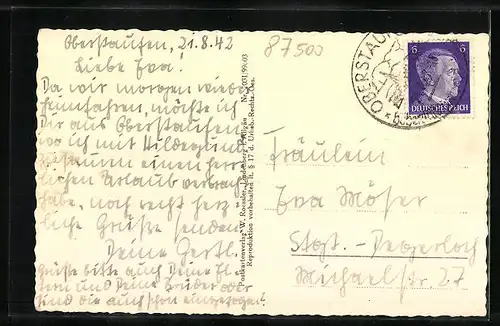 Oberstaufen, 21.8.42
Liebe Eva!
Da wir morgen wieder
heimfahren, möchte ich
Dir aus Oberstaufen,
wo ich mit Hildegund
zusammen einen herr-
lichen Urlaub verbracht
habe, noch recht herz-
liche Grüße senden.
Deine Gertl.
Grüße bitte auch Deine El-
tern und Deine Brüder oder
sind die auch schon eingezogen?
87500
Postkartenverlag W. Lindenberg i. Allgäu
Reproduktion vorbehalten lt. § 17 d. Urheb.-Rechts-Ges.
OBERSTAUFEN
6
6
DEUTSCHES REICH
Fräulein
Eva Möser
Stgt.-Degerloch
Michaelstr. 27